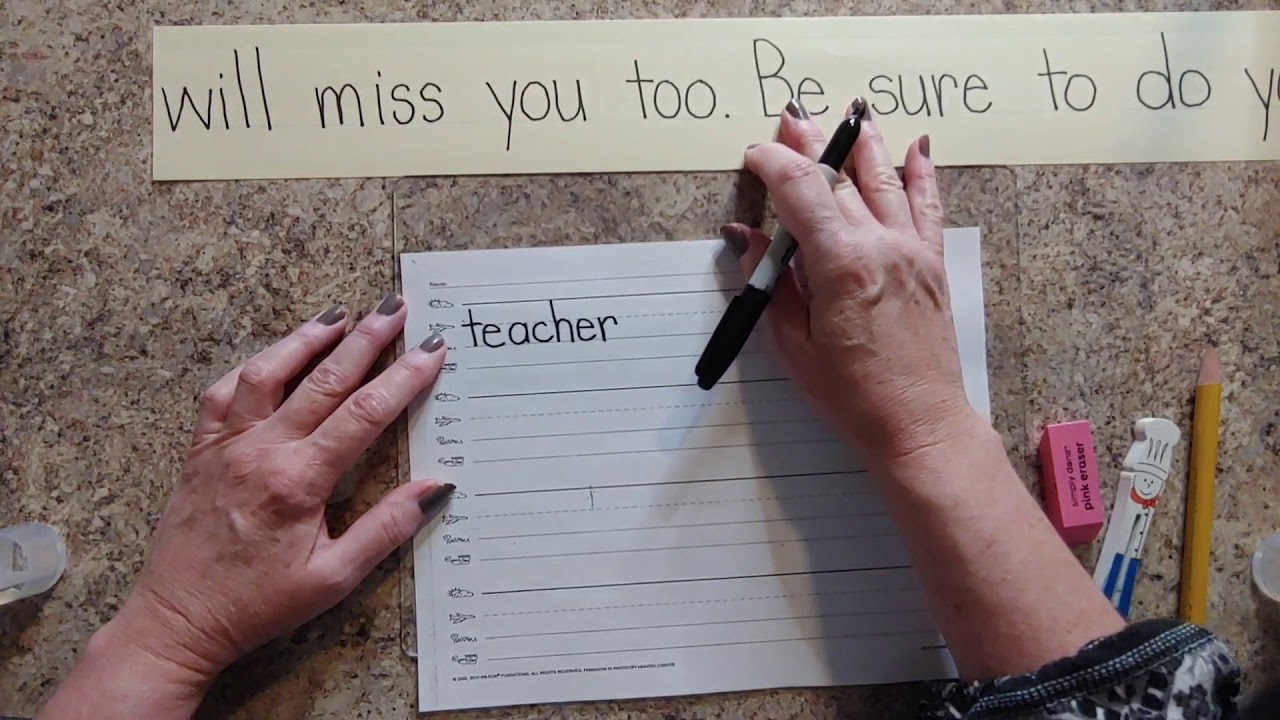 will miss you too. Be sure to do
Name:
teacher
simply done™
pink eraser
© 2002, 2010 WILSON® FOUNDATIONS. ALL RIGHTS RESERVED. PERMISSION TO PHOTOCOPY GRANTED.